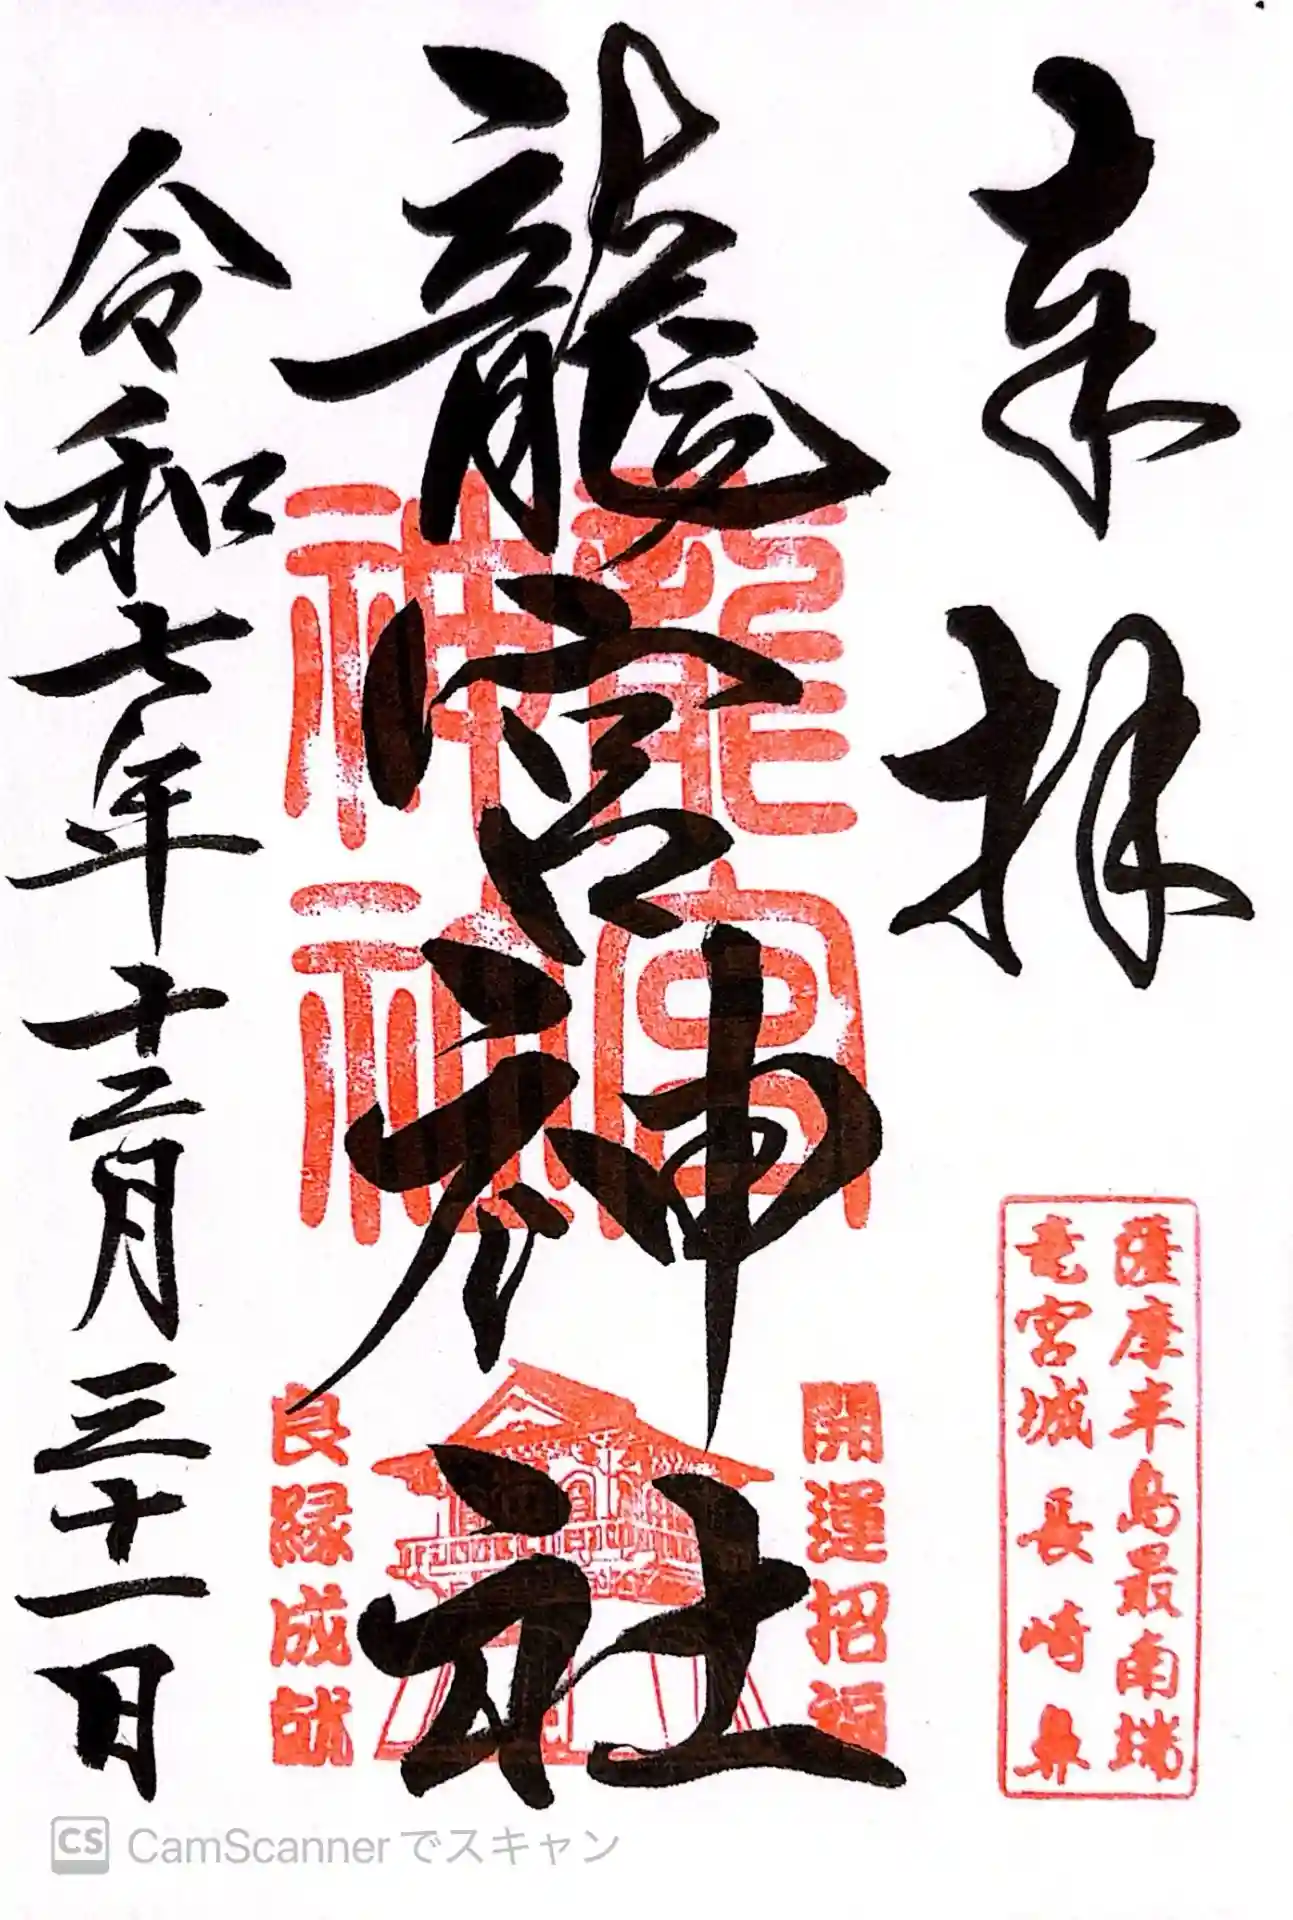 奉拝
薩摩半島最南端
竜宮城 長崎鼻
龍宮神社
龍宮
神社
開運招福
良縁成就
令和七年十二月三十一日
CS CamScannerでスキャン